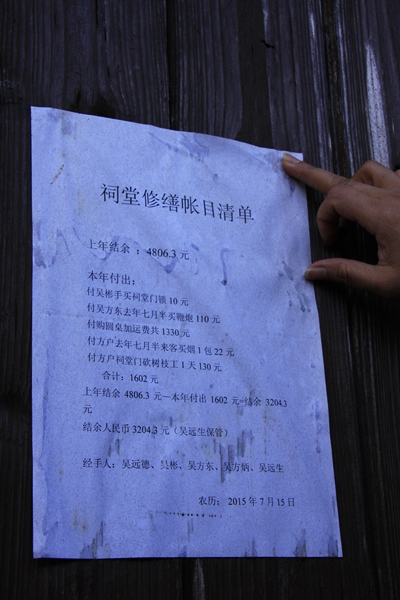 祠堂修缮帐目清单
上年结余：4806.3 元
本年付出：
付吴彬手买祠堂门锁 10 元
付吴方东去年七月半买鞭炮 110 元
付购圆桌加运费共 1330 元
付方户去年七月半来客买烟 1 包 22 元
付方户祠堂门砍树枝工 1 天 130 元
合计：1602 元
上年结余 4806.3 元—本年付出 1602 元=结余 3204.3
元
结余人民币 3204.3 元（吴远生保管）
经手人：吴远德、吴彬、吴方东、吴方炳、吴远生
农历：2015 年 7 月 15 日